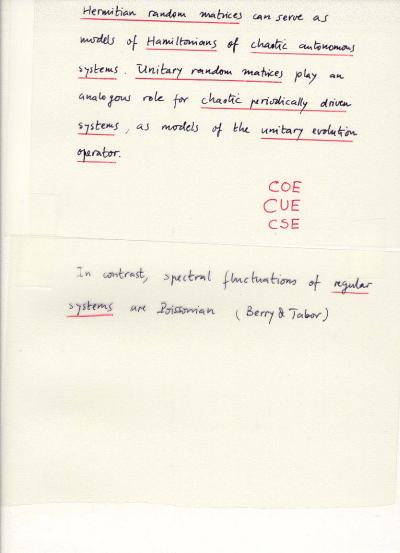 Hermitian random matrices can serve as
models of Hamiltonians of chaotic autonomous
systems. Unitary random matrices play an
analogous role for chaotic periodically driven
systems, as models of the unitary evolution
operator.
COE
CUE
CSE
In contrast, spectral fluctuations of regular
systems are Poissonian (Berry & Tabor)